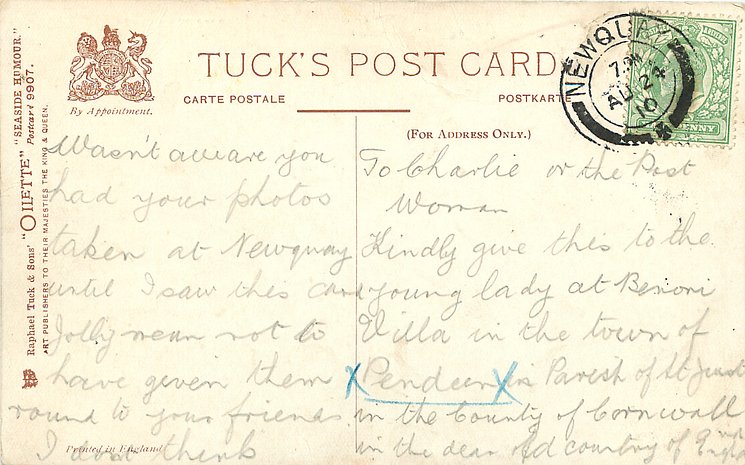 TUCK'S POST CARD
By Appointment.
CARTE POSTALE
POSTKARTE
(FOR ADDRESS ONLY.)
Raphael Tuck & Sons' "OILETTE" "SEASIDE HUMOUR."
Postcard 9907.
ART PUBLISHERS TO THEIR MAJESTIES THE KING & QUEEN.
NEWQUAY
7. PM
AU 24
10
PENNY
Wasn't aware you
had your photos
taken at Newquay
until I saw this card
Jolly mean not to
have given them
round to your friends
I dont think
Printed in England
To Charlie or the Post
Woman
Kindly give this to the
young lady at Benoni
Villa in the town of
X Pendeen X in Parish of St Just
in the County of Cornwall
in the dear old country of England